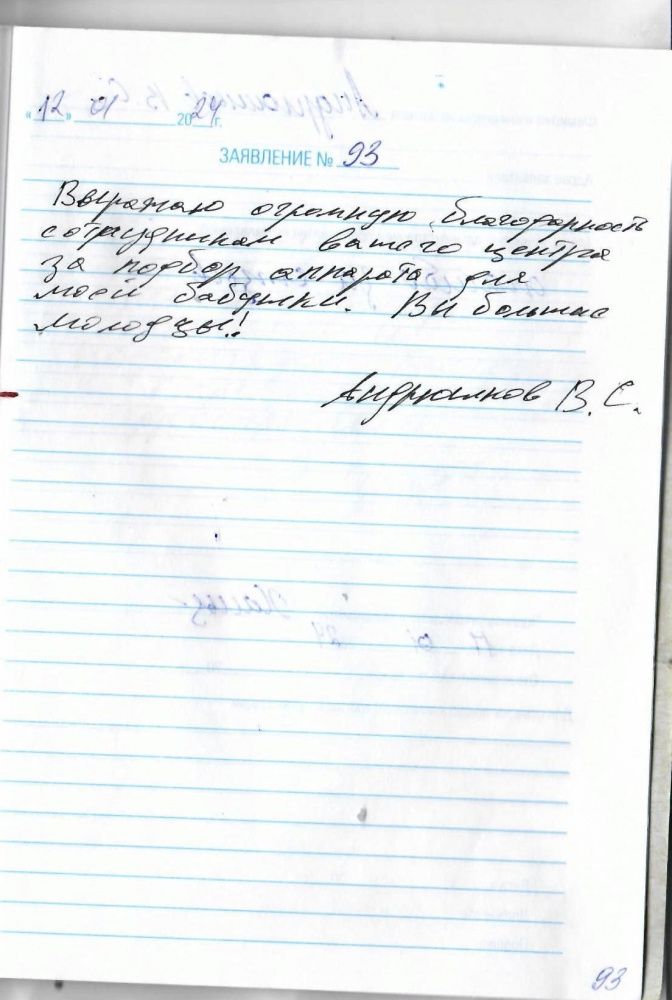 «12» 01 2024г.
ЗАЯВЛЕНИЕ № 93
Выражаю огромную благодарность
сотрудникам вашего центра
за подбор аппарата для
моей бабушки. Вы большие
молодцы!!
В. С.
93